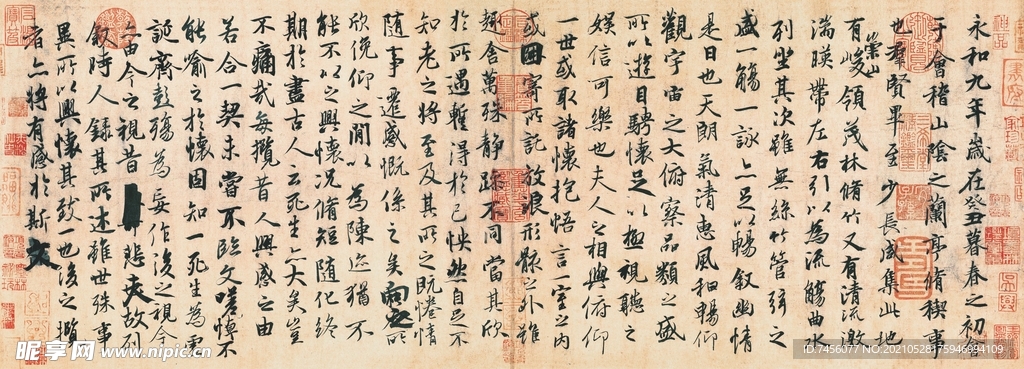 永和九年歲在癸丑暮春之初會
于會稽山陰之蘭亭脩稧事
也羣賢畢至少長咸集此地
有崇山峻領茂林脩竹又有清流激
湍暎帶左右引以為流觴曲水
列坐其次雖無絲竹管弦之
盛一觴一詠亦足以暢敘幽情
是日也天朗氣清惠風和暢仰
觀宇宙之大俯察品類之盛
所以遊目騁懷足以極視聽之
娛信可樂也夫人之相與俯仰
一世或取諸懷抱悟言一室之內
或因寄所託放浪形骸之外雖
趣舍萬殊靜躁不同當其欣
於所遇暫得於己怏然自足不
知老之將至及其所之既惓情
隨事遷感慨係之矣向之所
欣俛仰之間以為陳迹猶不
能不以之興懷況脩短隨化終
期於盡古人云死生亦大矣豈
不痛哉每攬昔人興感之由
若合一契未嘗不臨文嗟悼不
能喻之於懷固知一死生為虛
誕齊彭殤為妄作後之視今
亦由今之視昔悲夫故列
敘時人錄其所述雖世殊事
異所以興懷其致一也後之攬
者亦將有感於斯文
昵享网 www.nipic.com
ID:7456077 NO:20210528175946994109